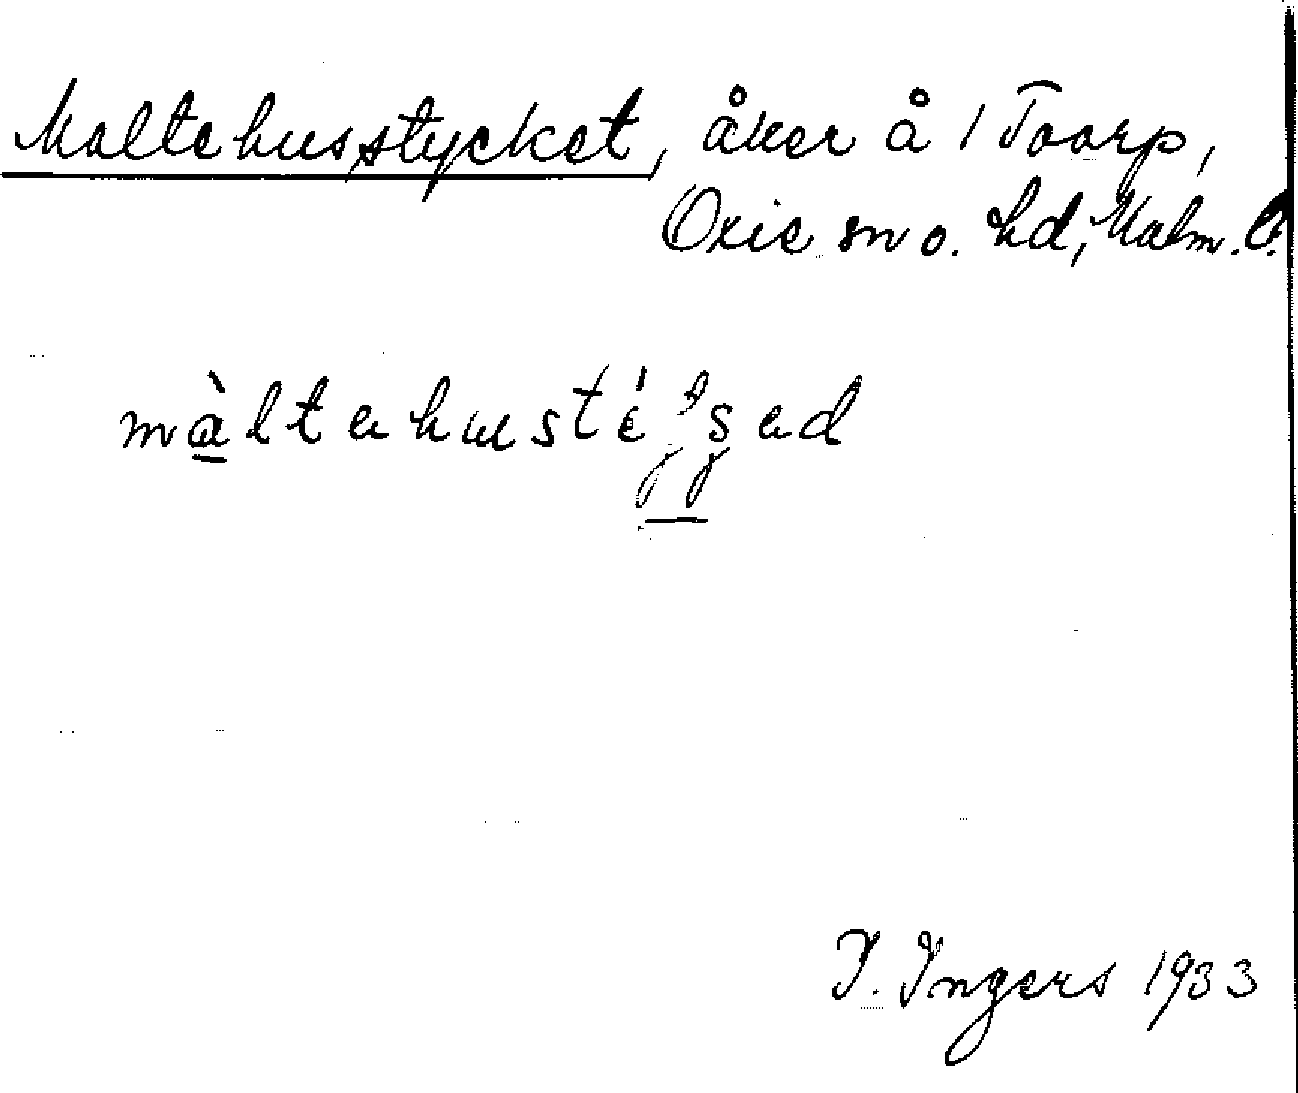 Maltehusstycket, åker å 1 Toarp,
Oxie sn o. hd, Malm. l.
I. Ingers 1933